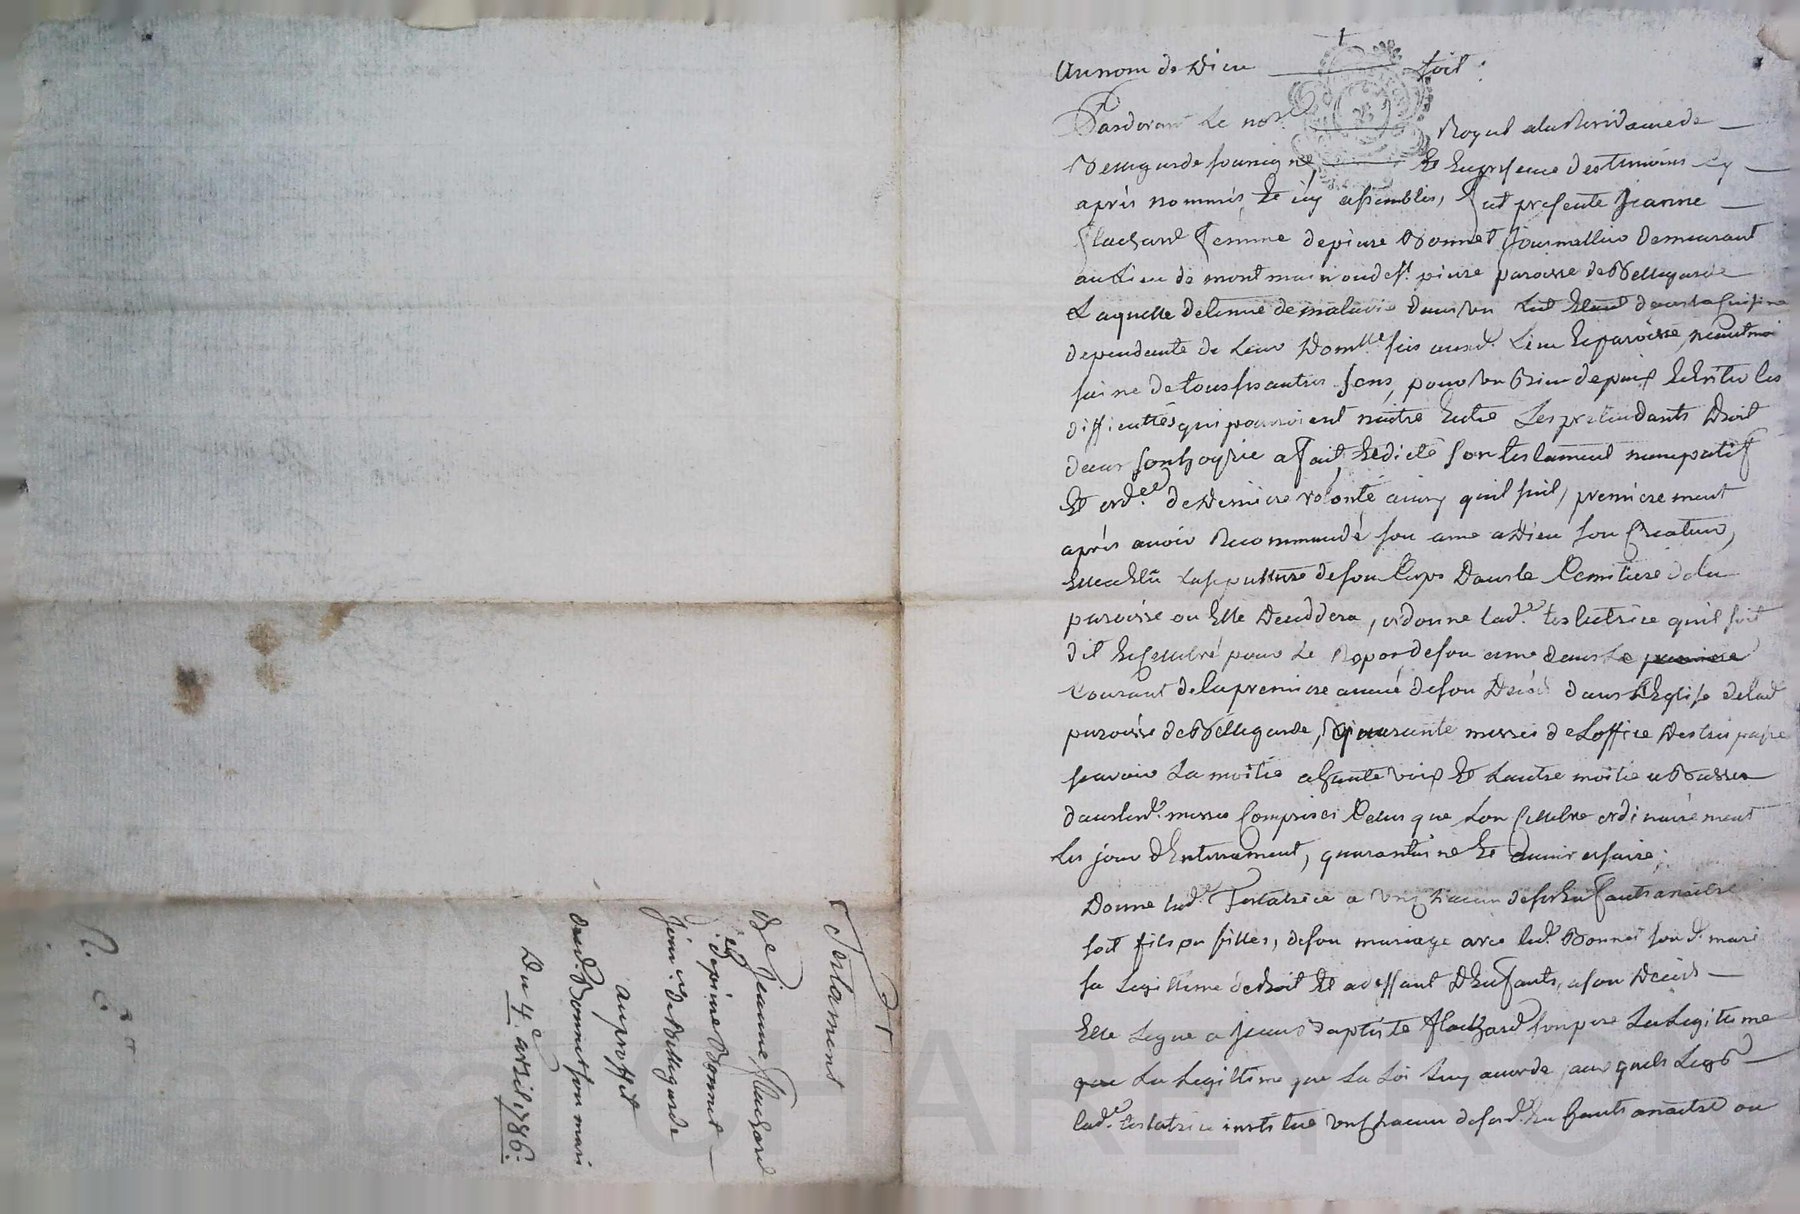 Au nom de Dieu soit :
Pardevant Le no.re Royal a la Residance de
Bellegarde soussigné, Et En presence des temoins cy
après nommés, Et icy assemblés, fut presente Jeanne
flachard femme de pierre Bonnet Journallier demeurant
au Lieu de montmain ou de st. pierre paroisse de Bellegarde
Laquelle detenue de maladie dans un Lit Etant dans la Cuisine
dependante de Leur Dom.lle sis aud.t Lieu Et paroisse, neantmoi
saine de tous ses autres sens, pour un Bien de paix Et Eviter les
difficultés qui pourroient naitre Entre Les pretendants Droit
dans son hoyrie a fait, Et dicté son testament nuncupatif
Et ord.ce de Derniere volonté ainsy qu'il suit, premierement
après avoir Recommandé son ame a Dieu son Createur,
Elle a Elu La sepulture de son Corps Dans le Cemitiere de la
paroisse ou Elle Deceddera, ordonne lad.e testatrice qu'il soit
dit Et Cellebré pour Le Repos de son ame dans Le premiere
Courant de la premiere année de son Decès dans L'Eglise de lad.
paroisse de Bellegarde, quarante messes de L'office Des trepasse
scavoir La moitié a haute voix Et Lautre moitié a Basses
dans lesd. messes Comprises Celles que Lon Cellebre ordinairement
Les jour d'Enterrement, quarantaine Et anniversaire;
Donne lad.e Testatrice a un Chacun de ses Enfants a naitre
soit fils ou filles, de son mariage avec led. Bonnet sond. mari
sa Legittime de droit Et a deffaut D'Enfants, a son Decès
Elle Legue a jean Baptiste flachard son pere La Legittime
que La Legittime que La Loi Luy accorde, aux quels Legs
lad.e testatrice institue un Chacun de sesd. Enfants a naitre ou
Testament
De Jeanne flachard
de pierre Bonnet
de Bellegarde
au proffit
dud. Bonnet son mari
Du 4.e avril 1786: